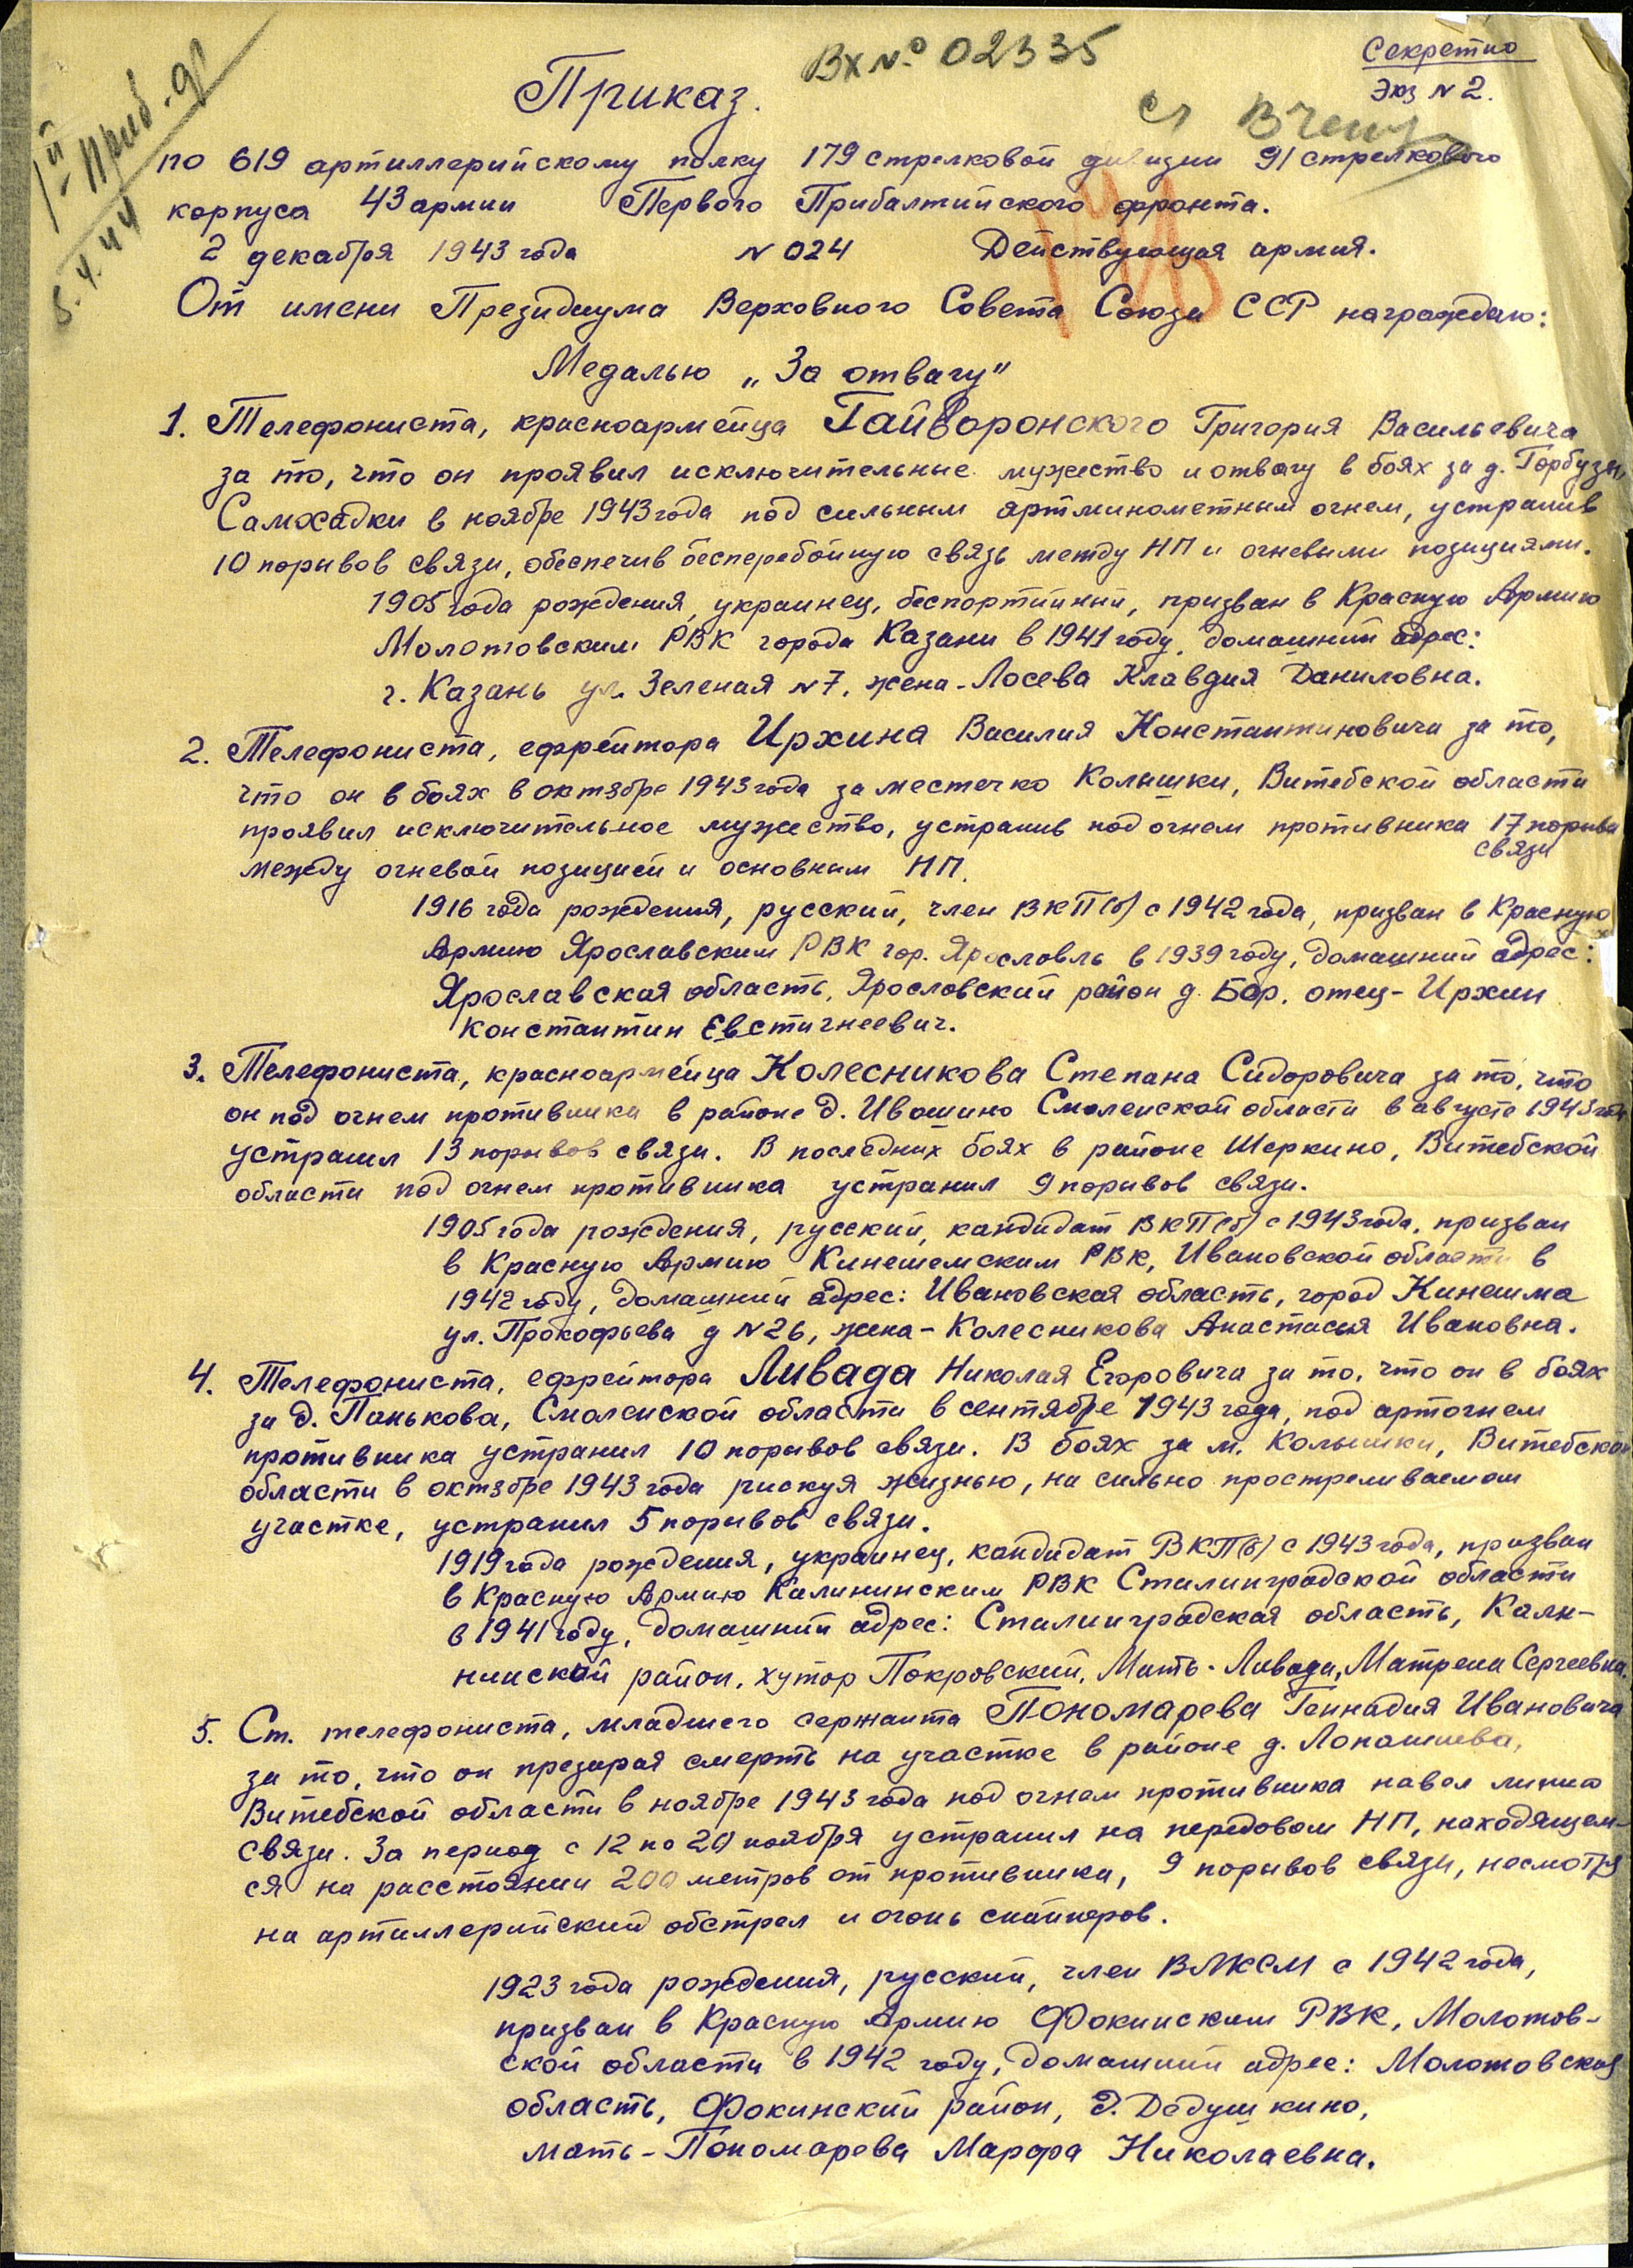 Вх № 02335
Секретно
Экз № 2.
Приказ.
5.4.44
по 619 артиллерийскому полку 179 стрелковой дивизии 91 стрелкового
корпуса 43 армии Первого Прибалтийского фронта.
2 декабря 1943 года № 024 Действующая армия.
От имени Президиума Верховного Совета Союза ССР награждаю:
Медалью „За отвагу"
1. Телефониста, красноармейца Гайворонского Григория Васильевича
за то, что он проявил исключительные мужество и отвагу в боях за д. Горбузы,
в ноябре 1943 года под сильным артминометным огнем, устранив
10 порывов связи, обеспечив бесперебойную связь между НП и огневыми позициями.
1905 года рождения, украинец, беспартийный, призван в Красную Армию
Молотовским РВК города Казани в 1941 году, домашний адрес:
г. Казань ул. Зеленая № 7, жена - Лосева Клавдия Даниловна.
2. Телефониста, ефрейтора Иржина Василия Константиновича за то,
что он в боях в октябре 1943 года за местечко Колышки, Витебской области
проявил исключительное мужество, устранив под огнем противника 17 порыва
связи
между огневой позицией и основным НП.
1916 года рождения, русский, член ВКП(б) с 1942 года, призван в Красную
Армию Ярославским РВК гор. Ярославль в 1939 году, домашний адрес:
Ярославская область, Ярославский район д. Бор, отец - Иржин
Константин Евстигнеевич.
3. Телефониста, красноармейца Колесникова Степана Сидоровича за то, что
он под огнем противника в районе д. Ивошино Смоленской области в августе 1943 года
устранил 13 порывов связи. В последних боях в районе Шеркино, Витебской
области под огнем противника устранил 9 порывов связи.
1905 года рождения, русский, кандидат ВКП(б) с 1943 года, призван
в Красную Армию Кинешемским РВК, Ивановской области в
1942 году, домашний адрес: Ивановская область, город Кинешма
ул. Прокофьева д № 26, жена - Колесникова Анастасия Ивановна.
4. Телефониста, ефрейтора Ливада Николая Егоровича за то, что он в боях
за д. Панькова, Смоленской области в сентябре 1943 года, под артогнем
противника устранил 10 порывов связи. В боях за м. Колышки, Витебской
области в октябре 1943 года рискуя жизнью, на сильно простреливаемом
участке, устранил 5 порывов связи.
1919 года рождения, украинец, кандидат ВКП(б) с 1943 года, призван
в Красную Армию Калининским РВК Сталинградской области
в 1941 году, домашний адрес: Сталинградская область, Кали-
нинский район, хутор Покровский, Мать - Ливада, Матрена Сергеевна.
5. Ст. телефониста, младшего сержанта Пономарева Геннадия Ивановича
за то, что он презирая смерть на участке в районе д. Лопашнева,
Витебской области в ноябре 1943 года под огнем противника навел линию
связи. За период с 12 по 20 ноября устранил на передовом НП, находящем-
ся на расстоянии 200 метров от противника, 9 порывов связи, несмотря
на артиллерийский обстрел и огонь снайперов.
1923 года рождения, русский, член ВЛКСМ с 1942 года,
призван в Красную Армию Фокинским РВК, Молотов-
ской области в 1942 году, домашний адрес: Молотовская
область, Фокинский район, д. Дедушкино,
мать - Пономарева Марфа Николаевна.